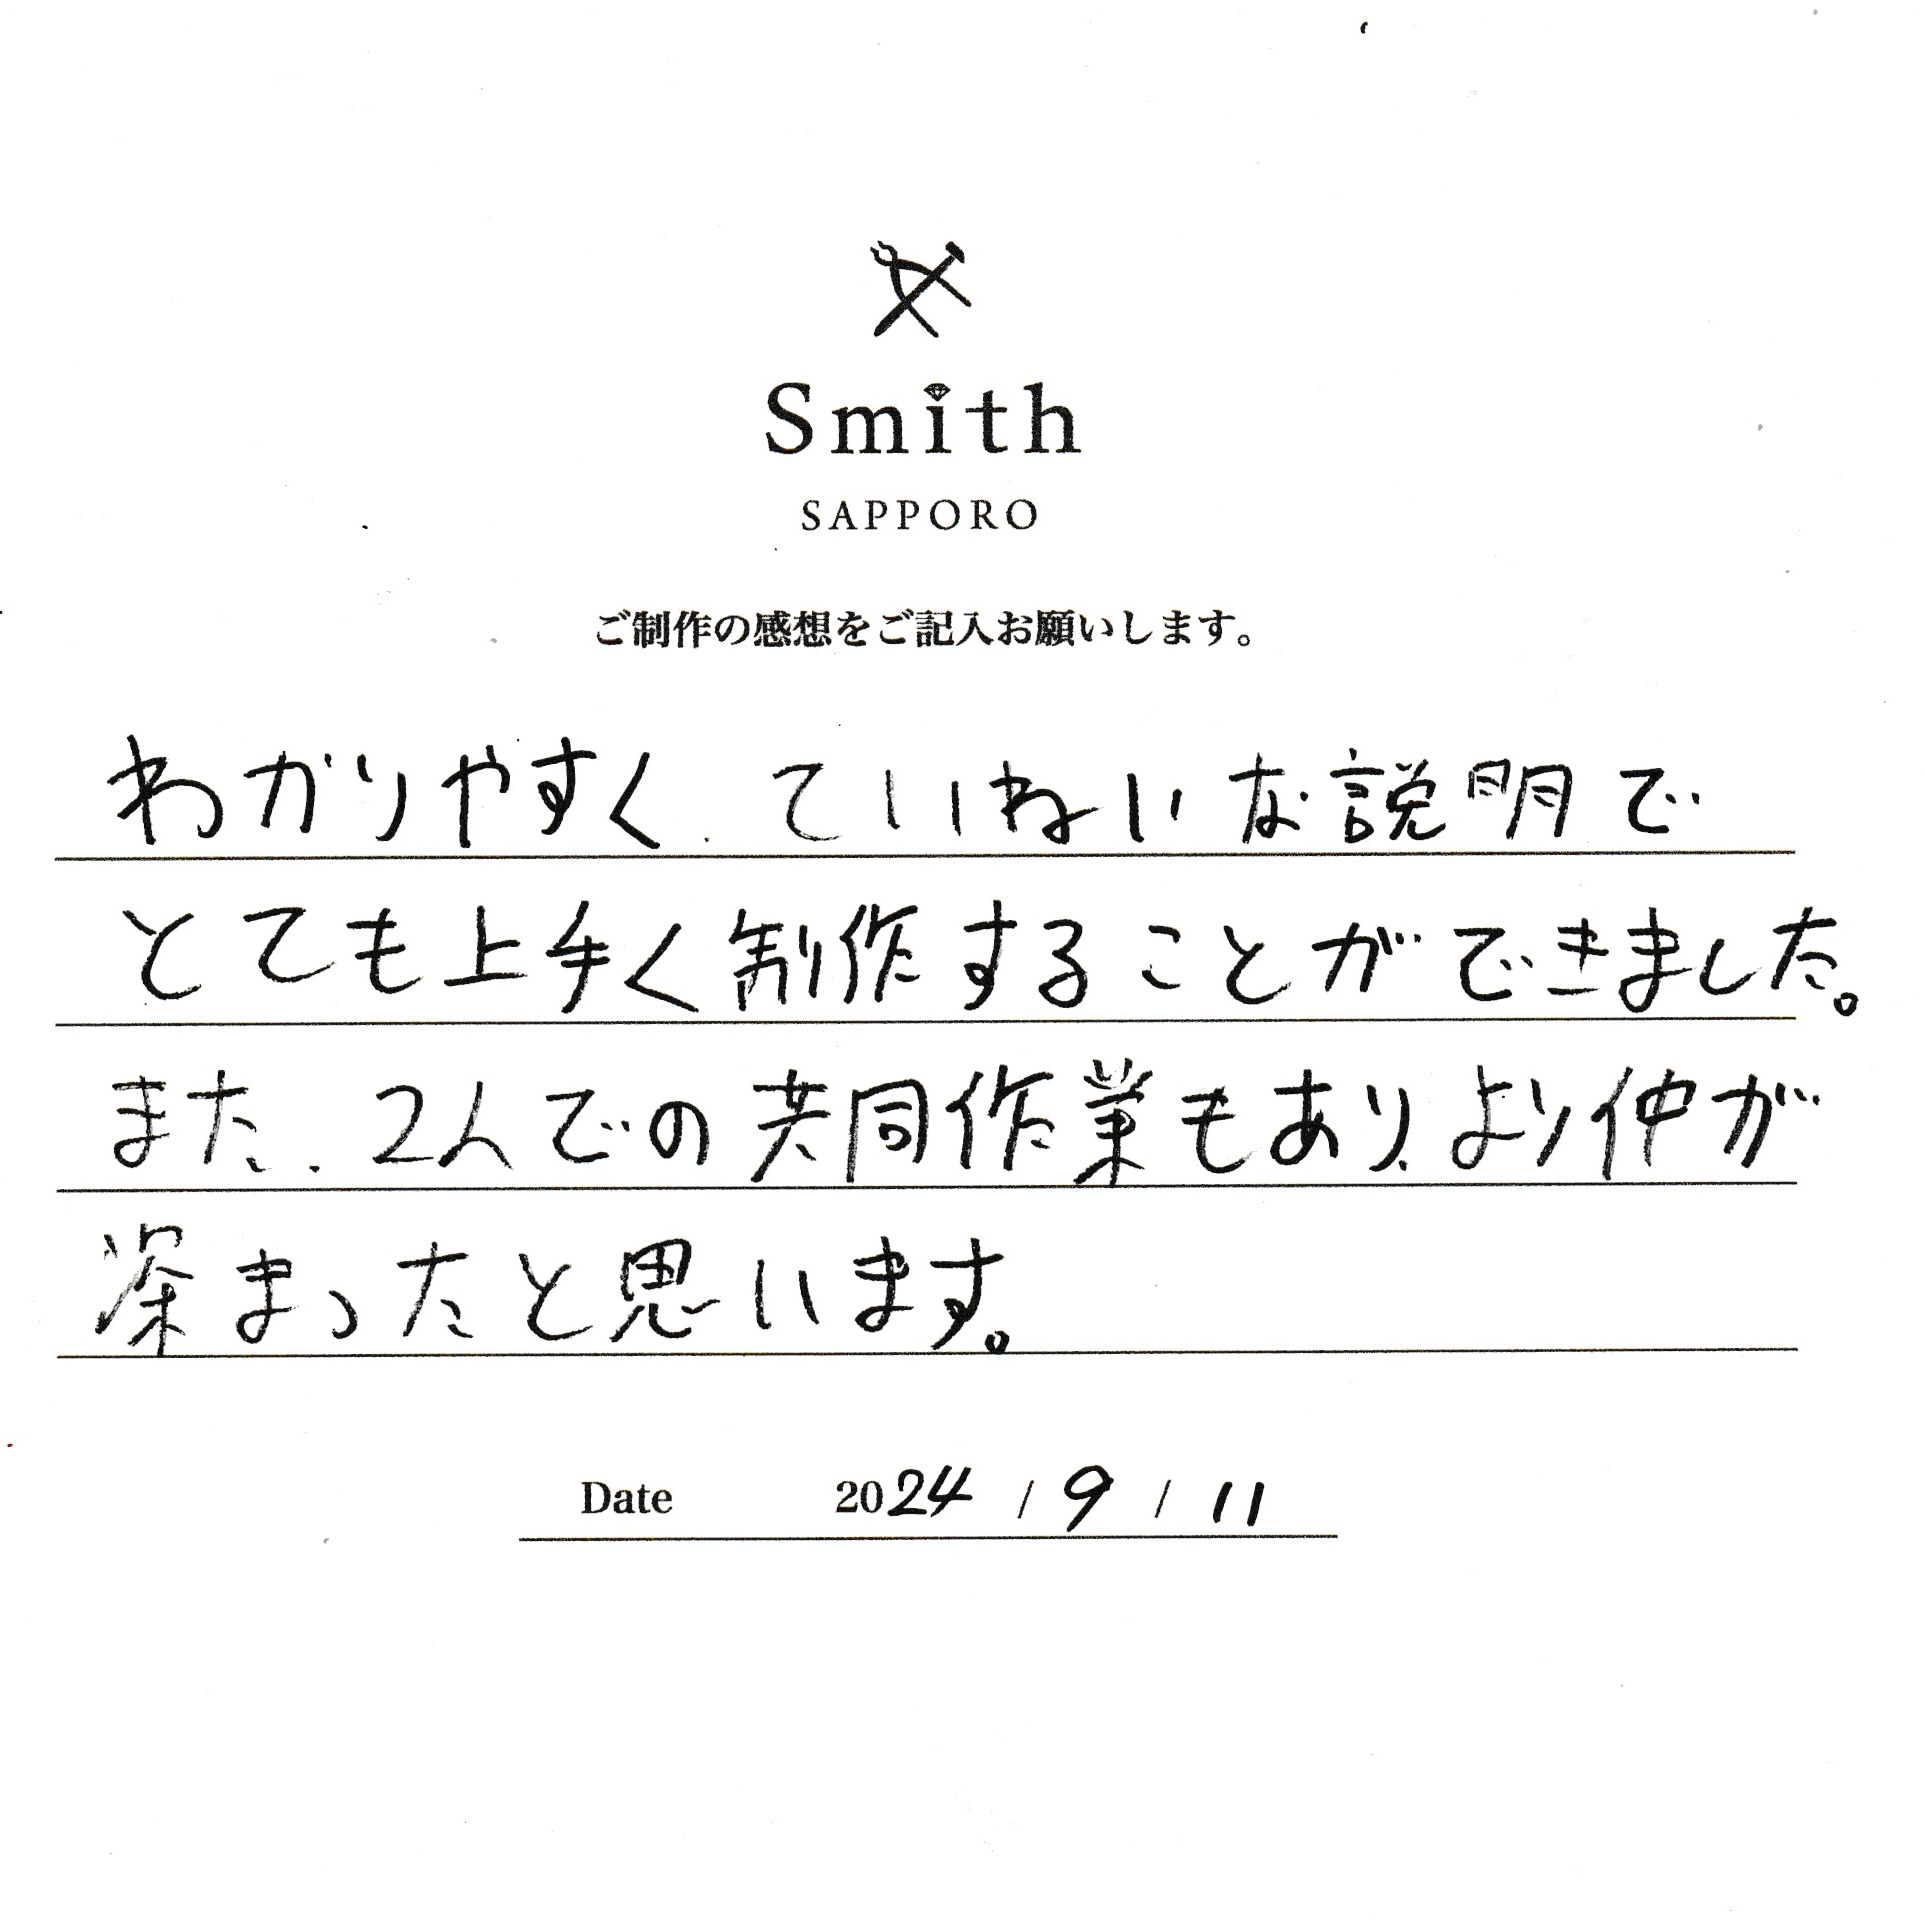 Smith
SAPPORO
ご制作の感想をご記入お願いします。
わかりやすく、ていねいな説明で
とても上手く制作することができました。
また、2人での共同作業もあり、より仲が
深まったと思います。
Date 2024 / 9 / 11